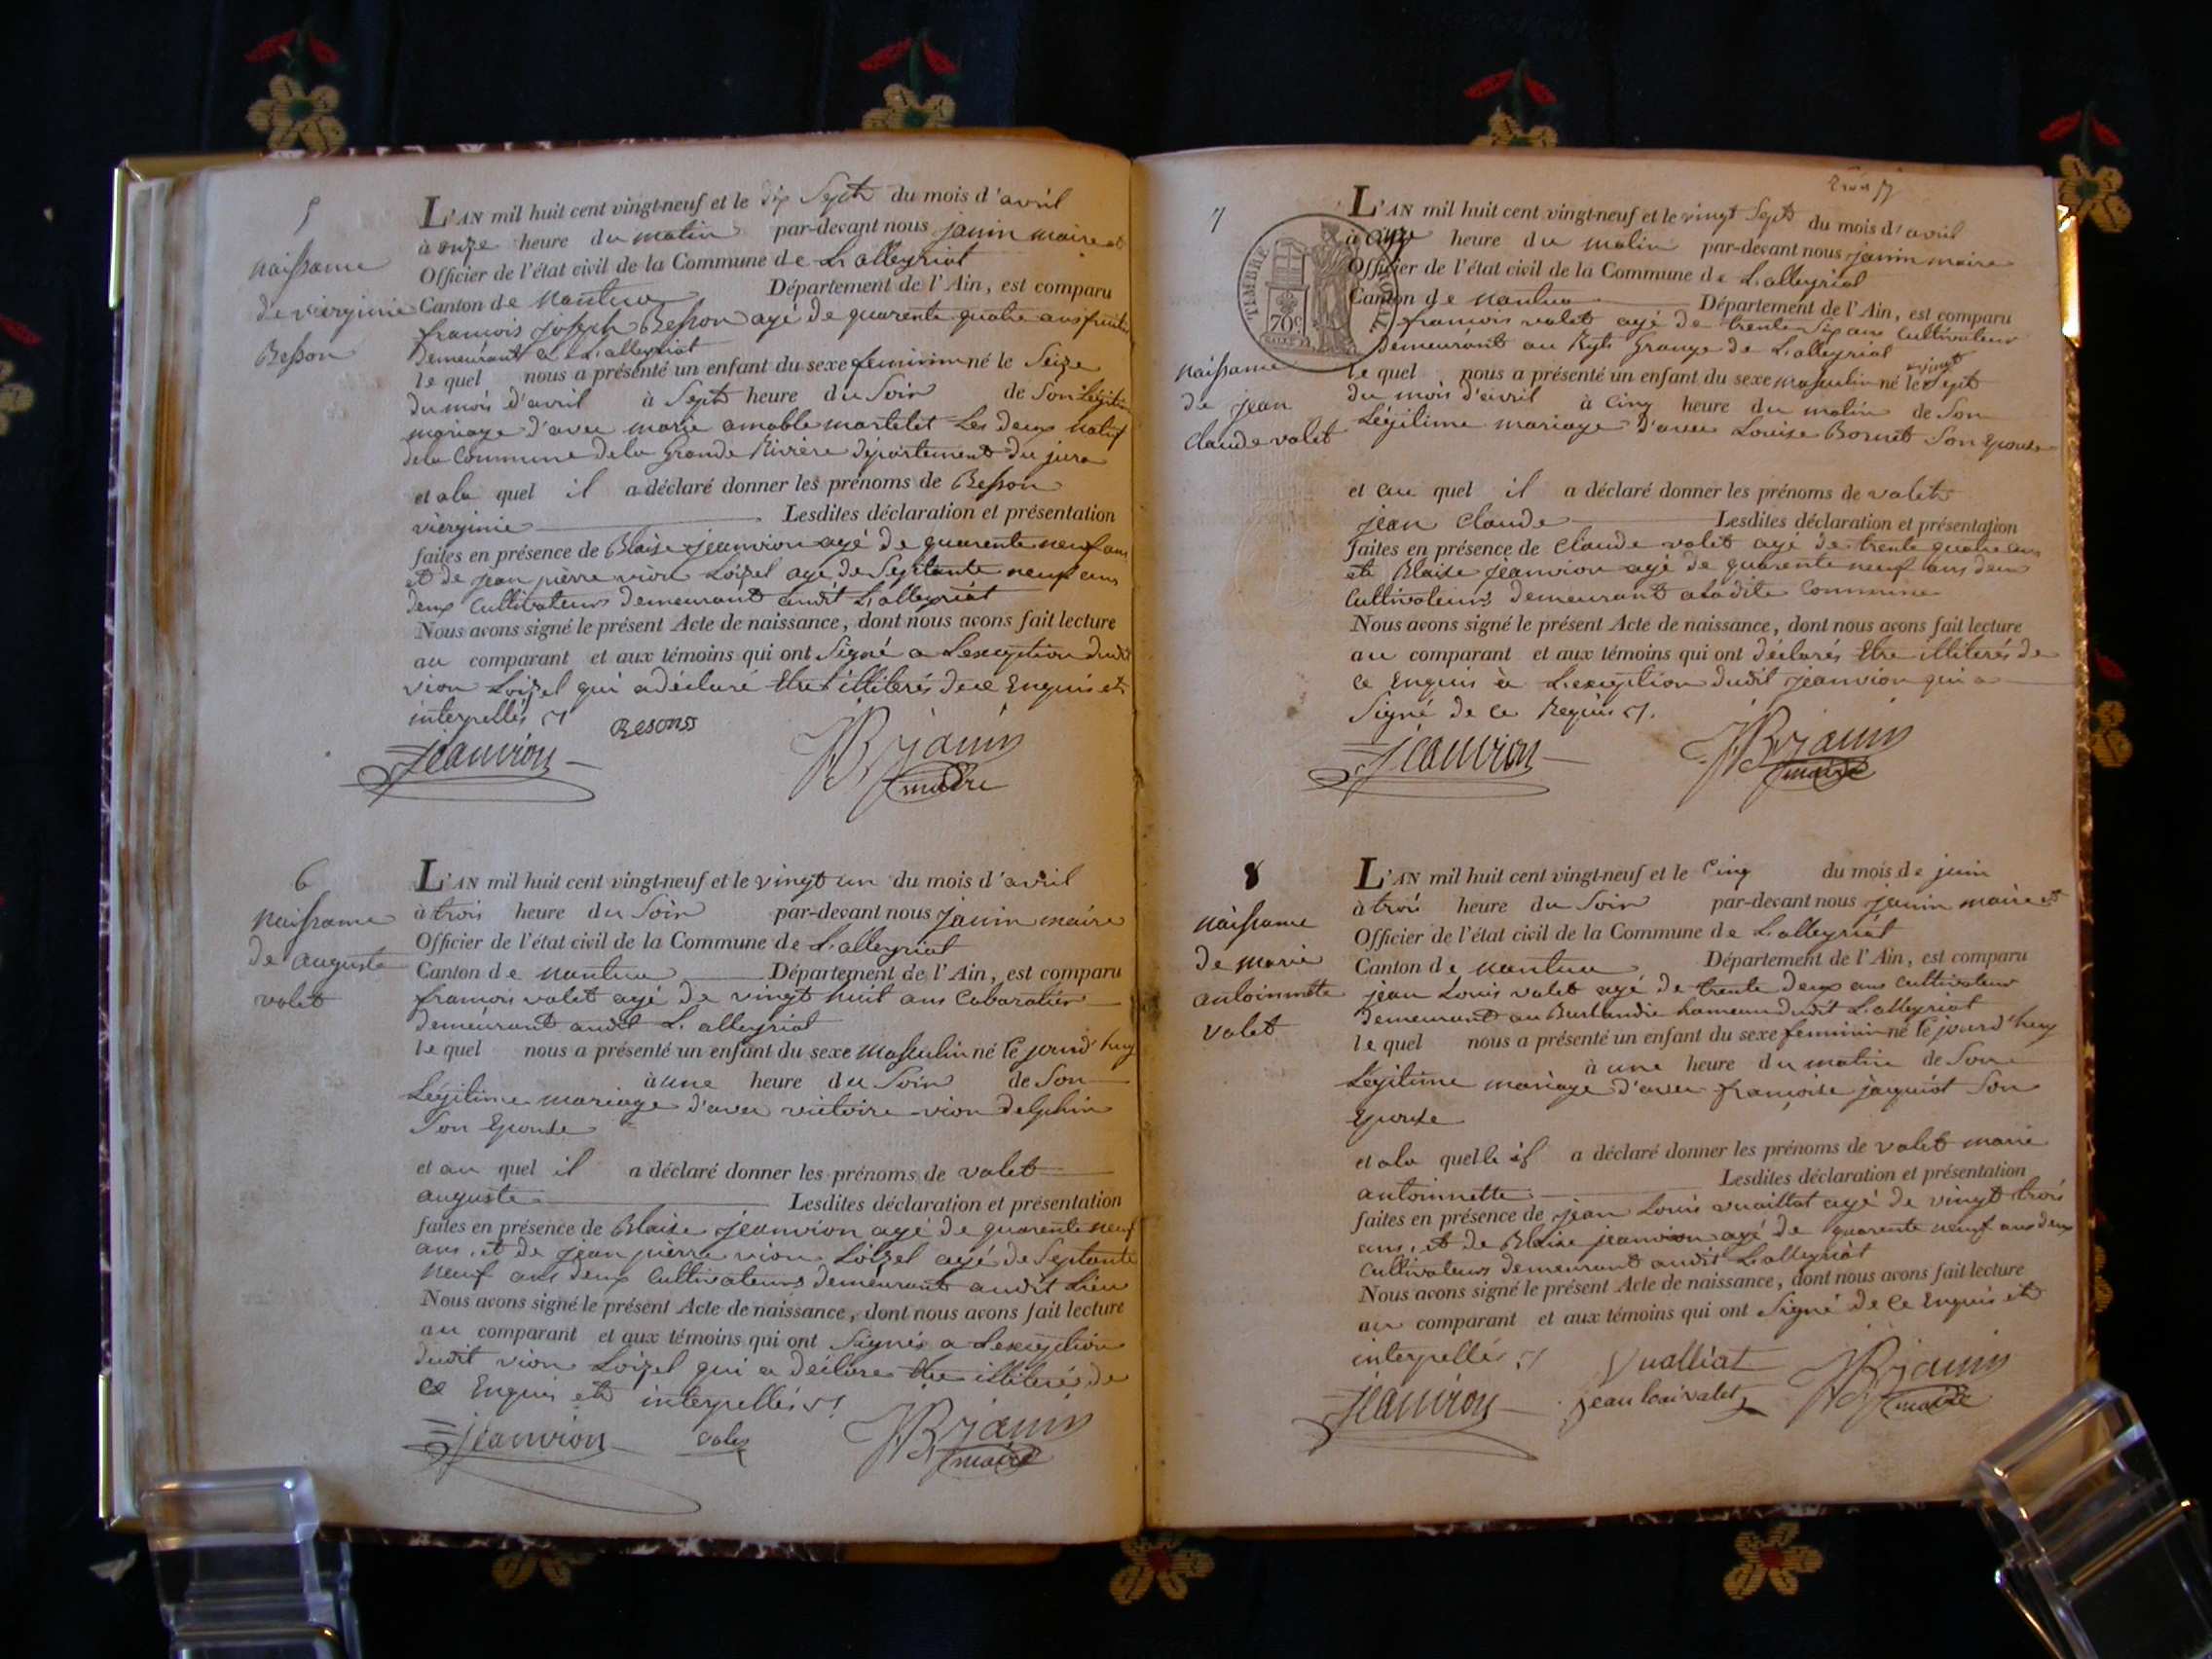 5
naissance
de vierginie
Besson
L'AN mil huit cent vingt-neuf et le dix Sept du mois d'avril
à onze heure du matin par-devant nous janin maire et
Officier de l'état civil de la Commune de L'alleyriat
Canton de nantua Département de l'Ain, est comparu
francois joseph Besson agé de quarente quatre ans
demeurant a L'alleyriat
le quel nous a présenté un enfant du sexe feminin né le Seize
du mois d'avril à Sept heure du Soir de Son Légitime
mariage d'avec marie amable martelet Les deux natif
de la Commune de la Grande Rivière département du jura
et a la quel il a déclaré donner les prénoms de Besson
vierginie Lesdites déclaration et présentation
faites en présence de Blaise jeanvion agé de quarente neuf ans
et de jean pierre vion Loizel agé de Septante neuf ans
deux Cultivateurs demeurant audit L'alleyriat
Nous avons signé le présent Acte de naissance, dont nous avons fait lecture
au comparant et aux témoins qui ont Signé a Lexception dudit
vion Loizel qui a déclaré Etre illiterés de ce Enquis et
interpellés
jeanvion Besonss JB janin
maire
6
naissance
de auguste
valet
L'AN mil huit cent vingt-neuf et le vingt un du mois d'avril
à trois heure du Soir par-devant nous janin maire
Officier de l'état civil de la Commune de L'alleyriat
Canton de nantua Département de l'Ain, est comparu
francois valet agé de vingt huit ans Cabaratier
demeurant audit L'alleyriat
le quel nous a présenté un enfant du sexe masculin né le jourd'huy
à une heure du Soir de Son
Légitime mariage d'avec victoire vion delphin
Son Epouse
et au quel il a déclaré donner les prénoms de valet
auguste Lesdites déclaration et présentation
faites en présence de Blaise jeanvion agé de quarente neuf
ans, et de jean pierre vion Loizel agé de Septante
neuf ans deux Cultivateurs demeurant audit Lieu
Nous avons signé le présent Acte de naissance, dont nous avons fait lecture
au comparant et aux témoins qui ont Signés a Lexception
dudit vion Loizel qui a déclare Etre illiterés de
ce Enquis et interpellés
jeanvion valet JB janin
maire
7
TIMBRE ROYAL
70c
naissance
de jean
claude valet
L'AN mil huit cent vingt-neuf et le vingt Sept du mois d'avril
à onze heure du matin par-devant nous janin maire
Officier de l'état civil de la Commune de L'alleyriat
Canton de nantua Département de l'Ain, est comparu
francois valet agé de trente Six ans Cultivateur
demeurant au Grange de L'alleyriat
le quel nous a présenté un enfant du sexe masculin né le vingt Sept
du mois d'avril à Cinq heure du matin de Son
Légitime mariage d'avec Louise Bornet Son Epouse
et au quel il a déclaré donner les prénoms de valet
jean claude Lesdites déclaration et présentation
faites en présence de claude valet agé de trente quatre ans
et Blaise jeanvion agé de quarente neuf ans deux
Cultivateurs demeurant aladite Commune
Nous avons signé le présent Acte de naissance, dont nous avons fait lecture
au comparant et aux témoins qui ont déclarés Etre illiterés de
ce Enquis à Lexception dudit jeanvion qui a
Signé de ce Requis
jeanvion JB janin
maire
8
naissance
de marie
antoinnette
valet
L'AN mil huit cent vingt-neuf et le Cinq du mois de juin
à trois heure du Soir par-devant nous janin maire et
Officier de l'état civil de la Commune de L'alleyriat
Canton de nantua Département de l'Ain, est comparu
jean Louis valet agé de trente deux ans cultivateur
demeurant au Burlandie hameau dudit L'alleyriat
le quel nous a présenté un enfant du sexe feminin né le jourd'huy
à une heure du matin de Son
Légitime mariage d'avec françoise jaquiot Son
Epouse
et ala quelle il a déclaré donner les prénoms de valet marie
antoinnette Lesdites déclaration et présentation
faites en présence de jean Louis vuaillat agé de vingt trois
ans, et de Blaise jeanvion agé de quarente neuf ans deux
Cultivateurs demeurant audit L'alleyriat
Nous avons signé le présent Acte de naissance, dont nous avons fait lecture
au comparant et aux témoins qui ont Signé de ce Enquis et
interpellés Vualliat
jeanvion jean loui valet JB janin
maire